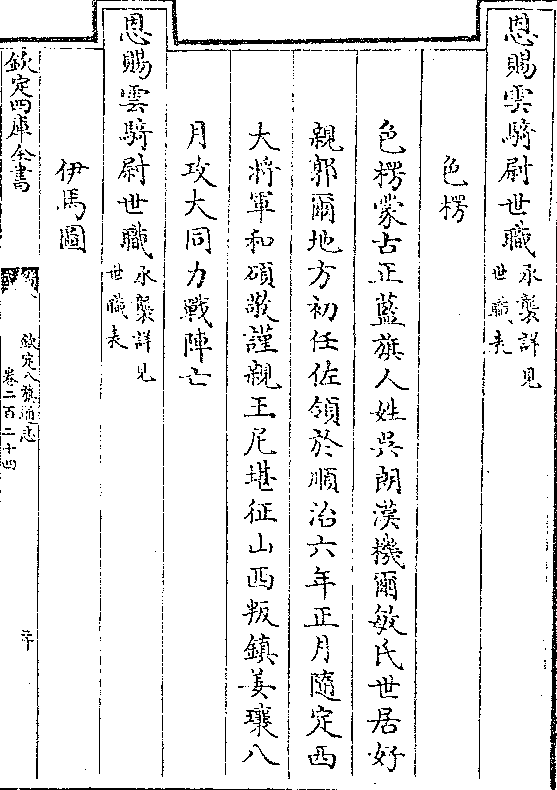 恩賜雲騎尉世職承襲詳見
世職表
色楞
色楞蒙古正藍旗人姓吳朗漢機爾敏氏世居好
親郭爾地方初任佐領於順治六年正月隨定西
大將軍和碩敬謹親王尼堪征山西叛鎮姜瓖八
月攻大同力戰陣亡
恩賜雲騎尉世職承襲詳見
世職表
伊馬圖
欽定四庫全書
欽定八旗通志
卷二百二十四